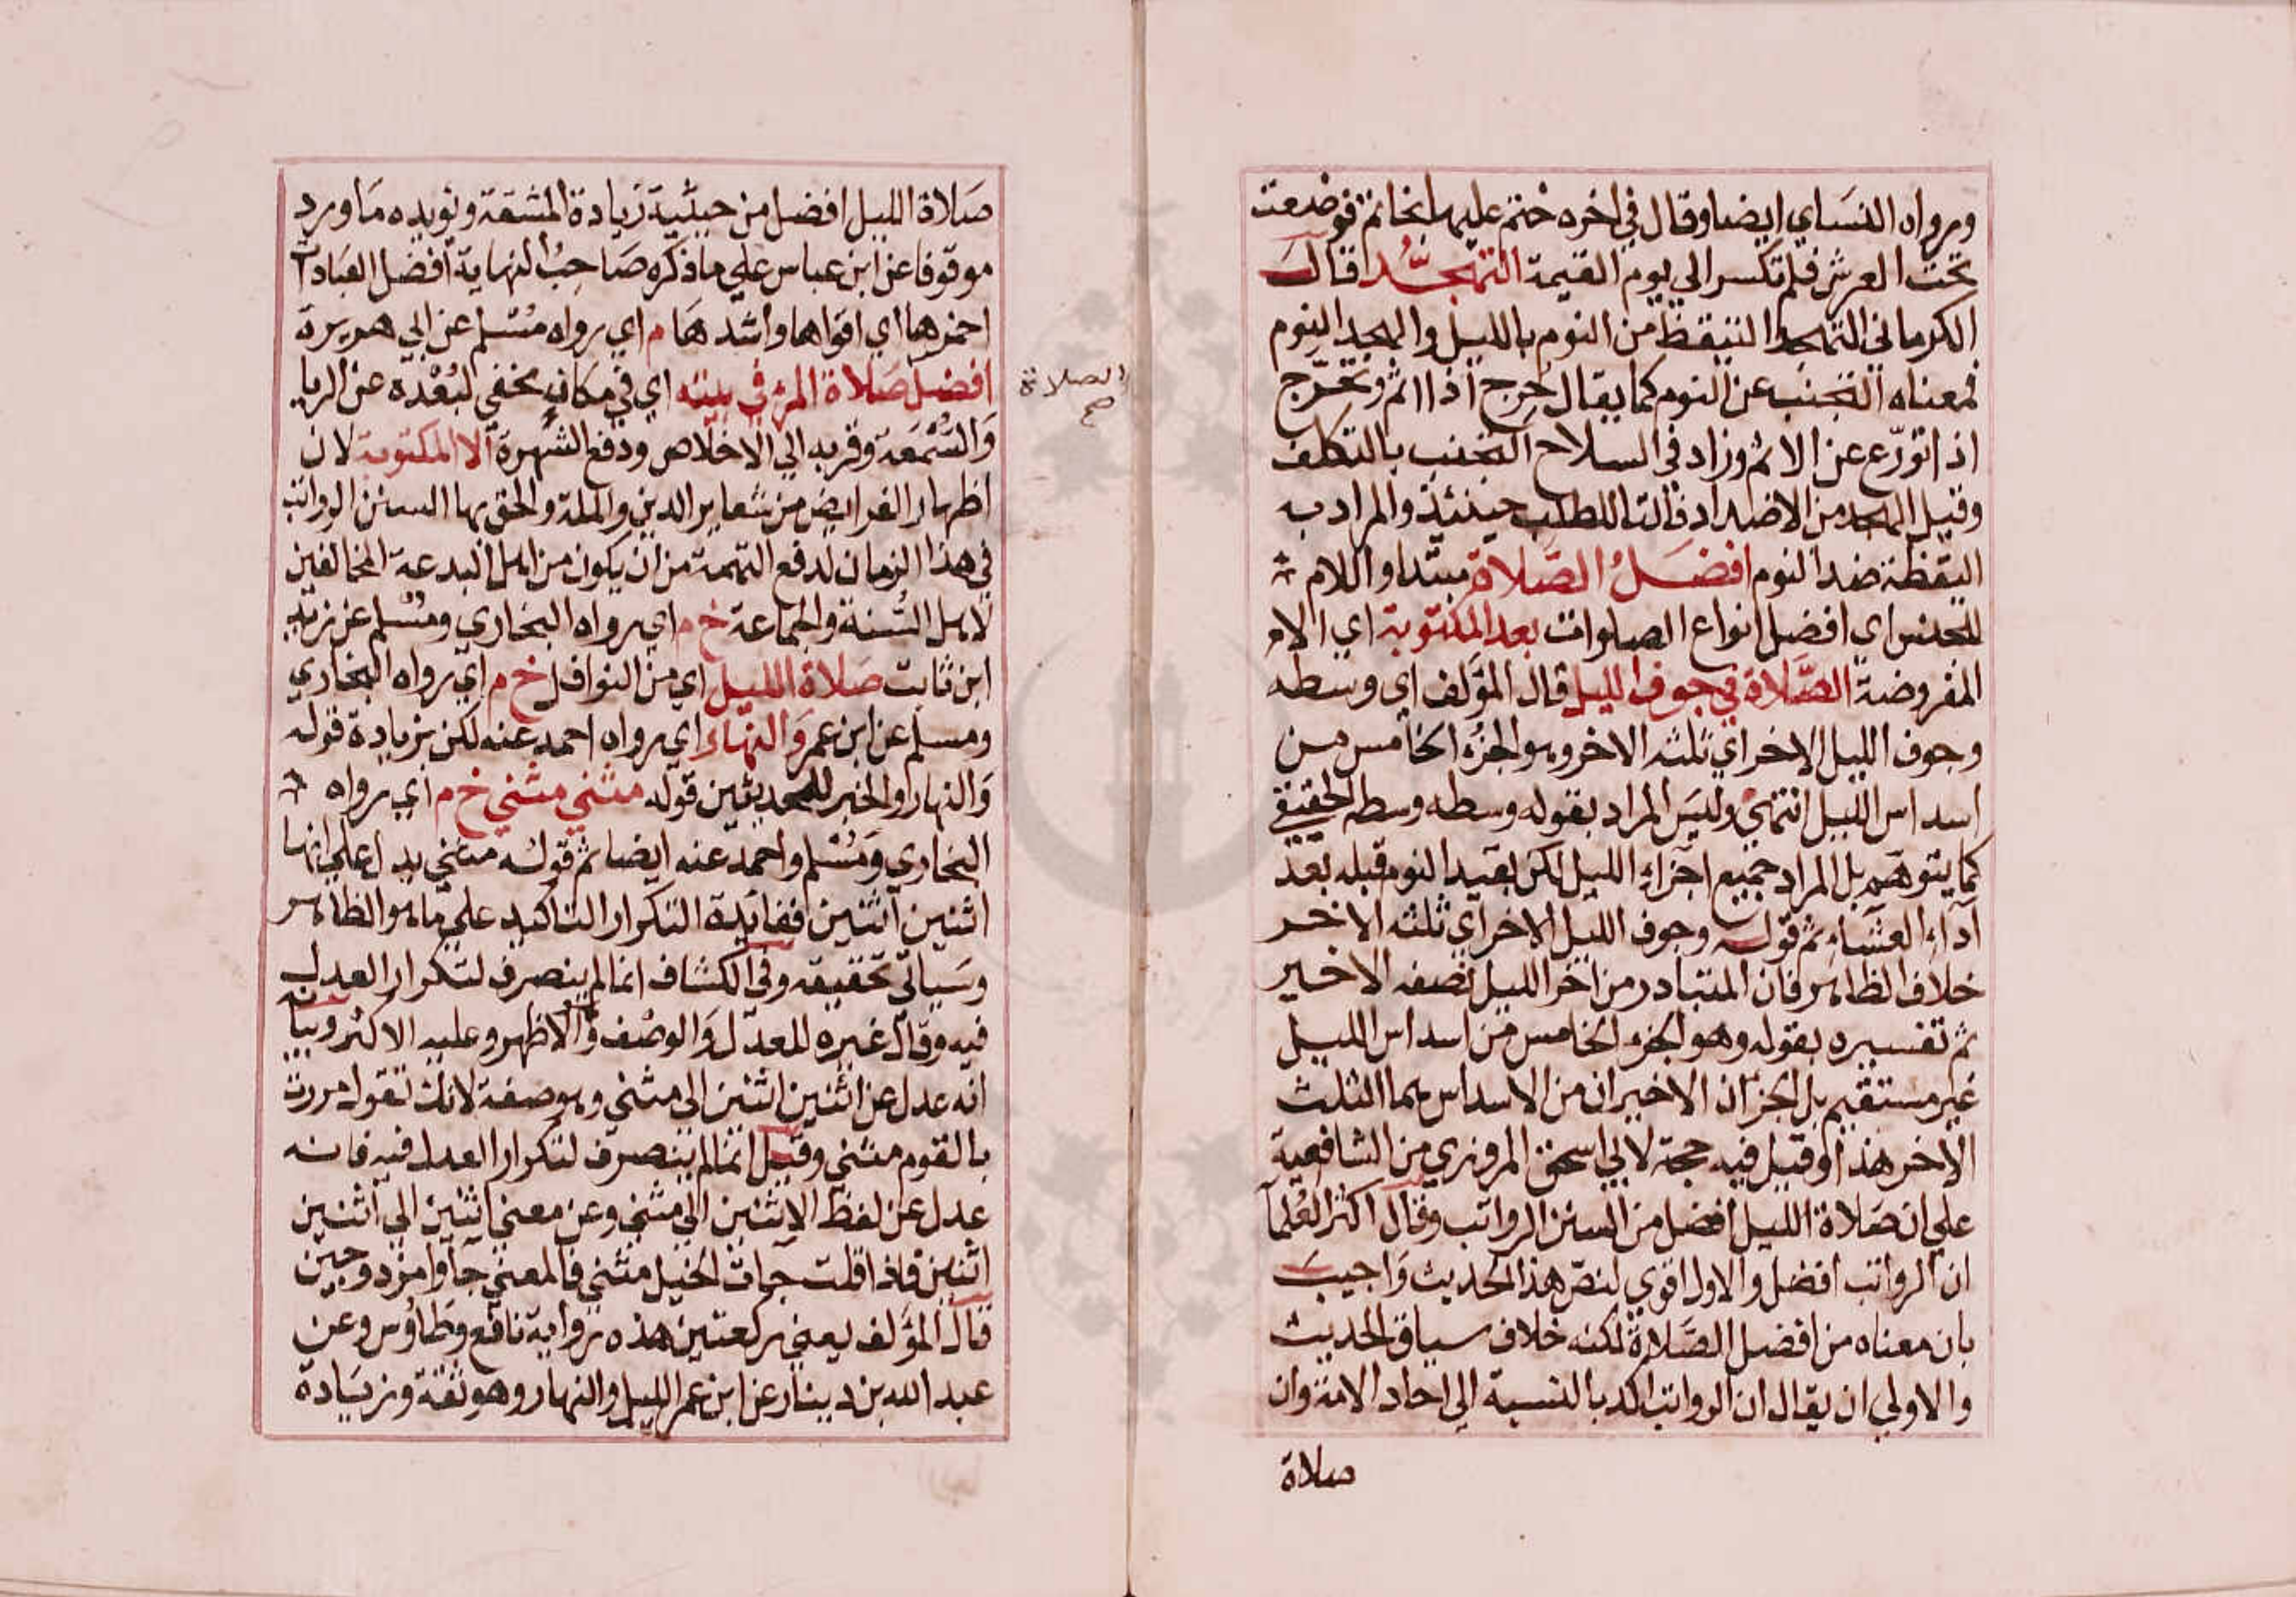 ورواه النساي ايضا وقال في اخره ختم عليها بخاتم فوضعت
تحت العرش فلم تكسر الى يوم القيمة التهجد قال
الكرماني التهجد التيقظ من النوم بالليل والهجد النوم
فمعناه التجنب عن النوم كما يقال حرج اذا اثم وتحرج
اذا تورع عن الاثم وزاد في السلاح التجنب بالتكلف
وقيل الهجد من الاضداد فالتا للطلب حينئذ والمراد به
اليقظة ضد النوم افضل الصلاة مبتدا واللام
للجنس اي افضل انواع الصلوات بعد المكتوبة اي
المفروضة الصلاة في جوف الليل قال المؤلف اي وسطه
وجوف الليل الاخر اي ثلثه الاخر وهو الجزء الخامس من
اسداس الليل انتهى وليس المراد بقوله وسطه وسطه الحقيقي
كما يتوهم بل المراد جميع اجزاء الليل لكن بقيد النوم قبله بعد
اداء العشاء ثم قوله وجوف الليل الاخر اي ثلثه الاخر
خلاف الظاهر فان المتبادر من اخر الليل نصفه الاخير
ثم تفسيره بقوله وهو الجزء الخامس من اسداس الليل
غير مستقيم بل الجزان الاخيران من الاسداس هما الثلث
الاخر هذا وقيل فيه حجة لابي اسحق المروزي من الشافعية
علي ان صلاة الليل افضل من السنن الرواتب وقال اكثر العلما
ان الرواتب افضل والاول اقوي لنص هذا الحديث واجيب
بان معناه من افضل الصلاة لكنه خلاف سياق الحديث
والاولي ان يقال ان الرواتب اكد بالنسبة الى احاد الامة وان
صلاة
صلاة الليل افضل من حيثية زيادة المشقة ويؤيده ما ورد
موقوفا عن ابن عباس علي ما ذكره صاحب النهاية افضل العبادات
احمزها اي اقواها واشدها م اي رواه مسلم عن ابي هريرة
افضل صلاة المرء في بيته اي في مكان مخفي لبعده عن الريا
والسمعة وقربه الي الاخلاص ودفع الشهرة الا المكتوبة لان
اظهار الفرايض من شعاير الدين والملة والحق بها السنن الرواتب
في هذا الزمان لدفع التهمة من ان يكون من اهل البدعة المخالفين
لاهل السنة والجماعة خ م اي رواه البخاري ومسلم عن زيد
ابن ثابت صلاة الليل اي من النوافل خ م اي رواه البخاري
ومسلم عن ابن عمر والنهار اي رواه احمد عنه لكن بزيادة قوله
والنهار والخبر للحديثين قوله مثني مثني خ م اي رواه
البخاري ومسلم واحمد عنه ايضا ثم قوله مثني يدل علي انها
اثنين اثنين ففائدة التكرار التاكيد علي ما هو الظاهر
وسياتي تحقيقه وفي الكشاف انما لم ينصرف لتكرار العدل
فيه وقال غيره للعدل والوصف والاظهر وعليه الاكثر وبيانه
انه عدل عن اثنين اثنين الى مثني وهو صفة لانك تقول مررت
بالقوم مثني وقيل انما لم ينصرف لتكرار العدل فيه فانه
عدل عن لفظ الاثنين الي مثني وعن معني اثنين الي اثنين
اثنين فاذا قلت جات الخيل مثني فالمعني جاوا مزدوجين
قال المؤلف يعني ركعتين هذه رواية نافع وطاؤس وعن
عبد الله بن دينار عن ابن عمر الليل والنهار وهو ثقة وزيادة
الصلاة
صح